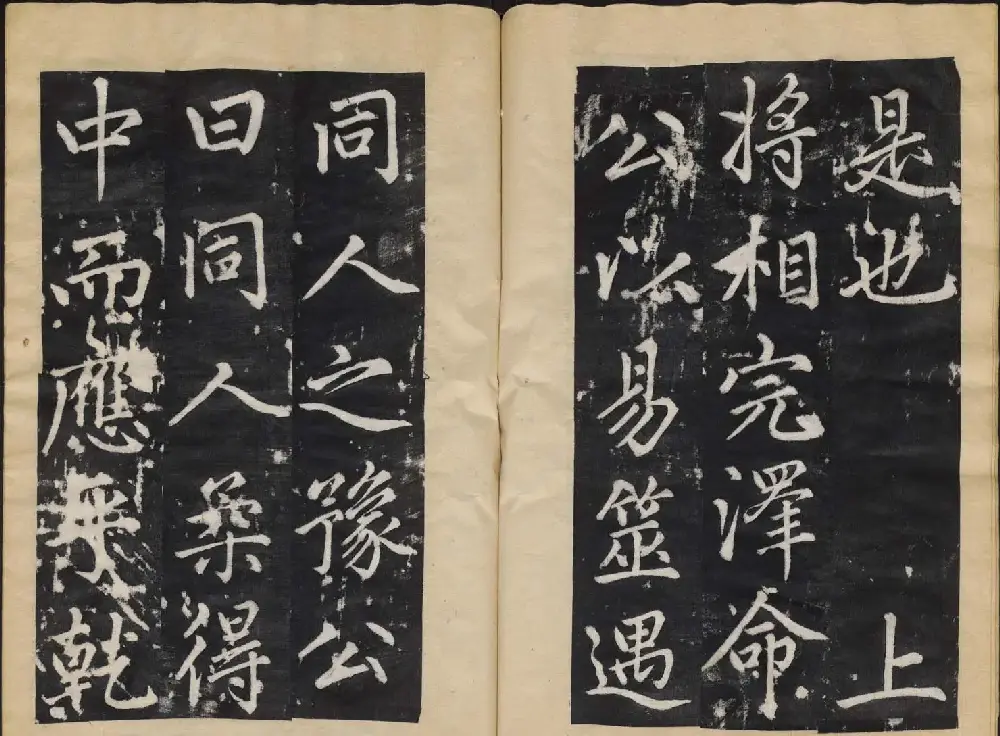 是也　上
將相完澤命
公以易筮遇
同人之豫公
曰同人柔得
中而應乎乾